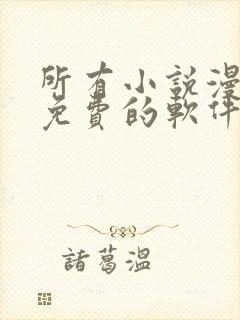 所有小說漫
免費的軟件
諸葛溫